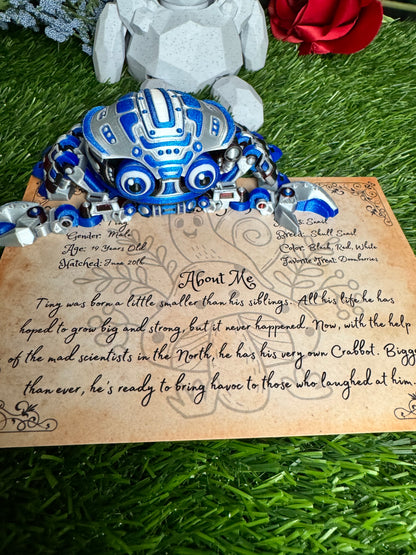 Snail
Gender: Male
Breed: Skull Snail
Age: 14 Years Old
Color: Black, Red, White
Hatched: June 20th
Favorite Treat: Doomberries
About Me
Tiny was born a little smaller than his siblings. All his life he has
hoped to grow big and strong, but it never happened. Now, with the help
of the mad scientists in the North, he has his very own Crabbot. Bigg
than ever, he's ready to bring havoc to those who laughed at him